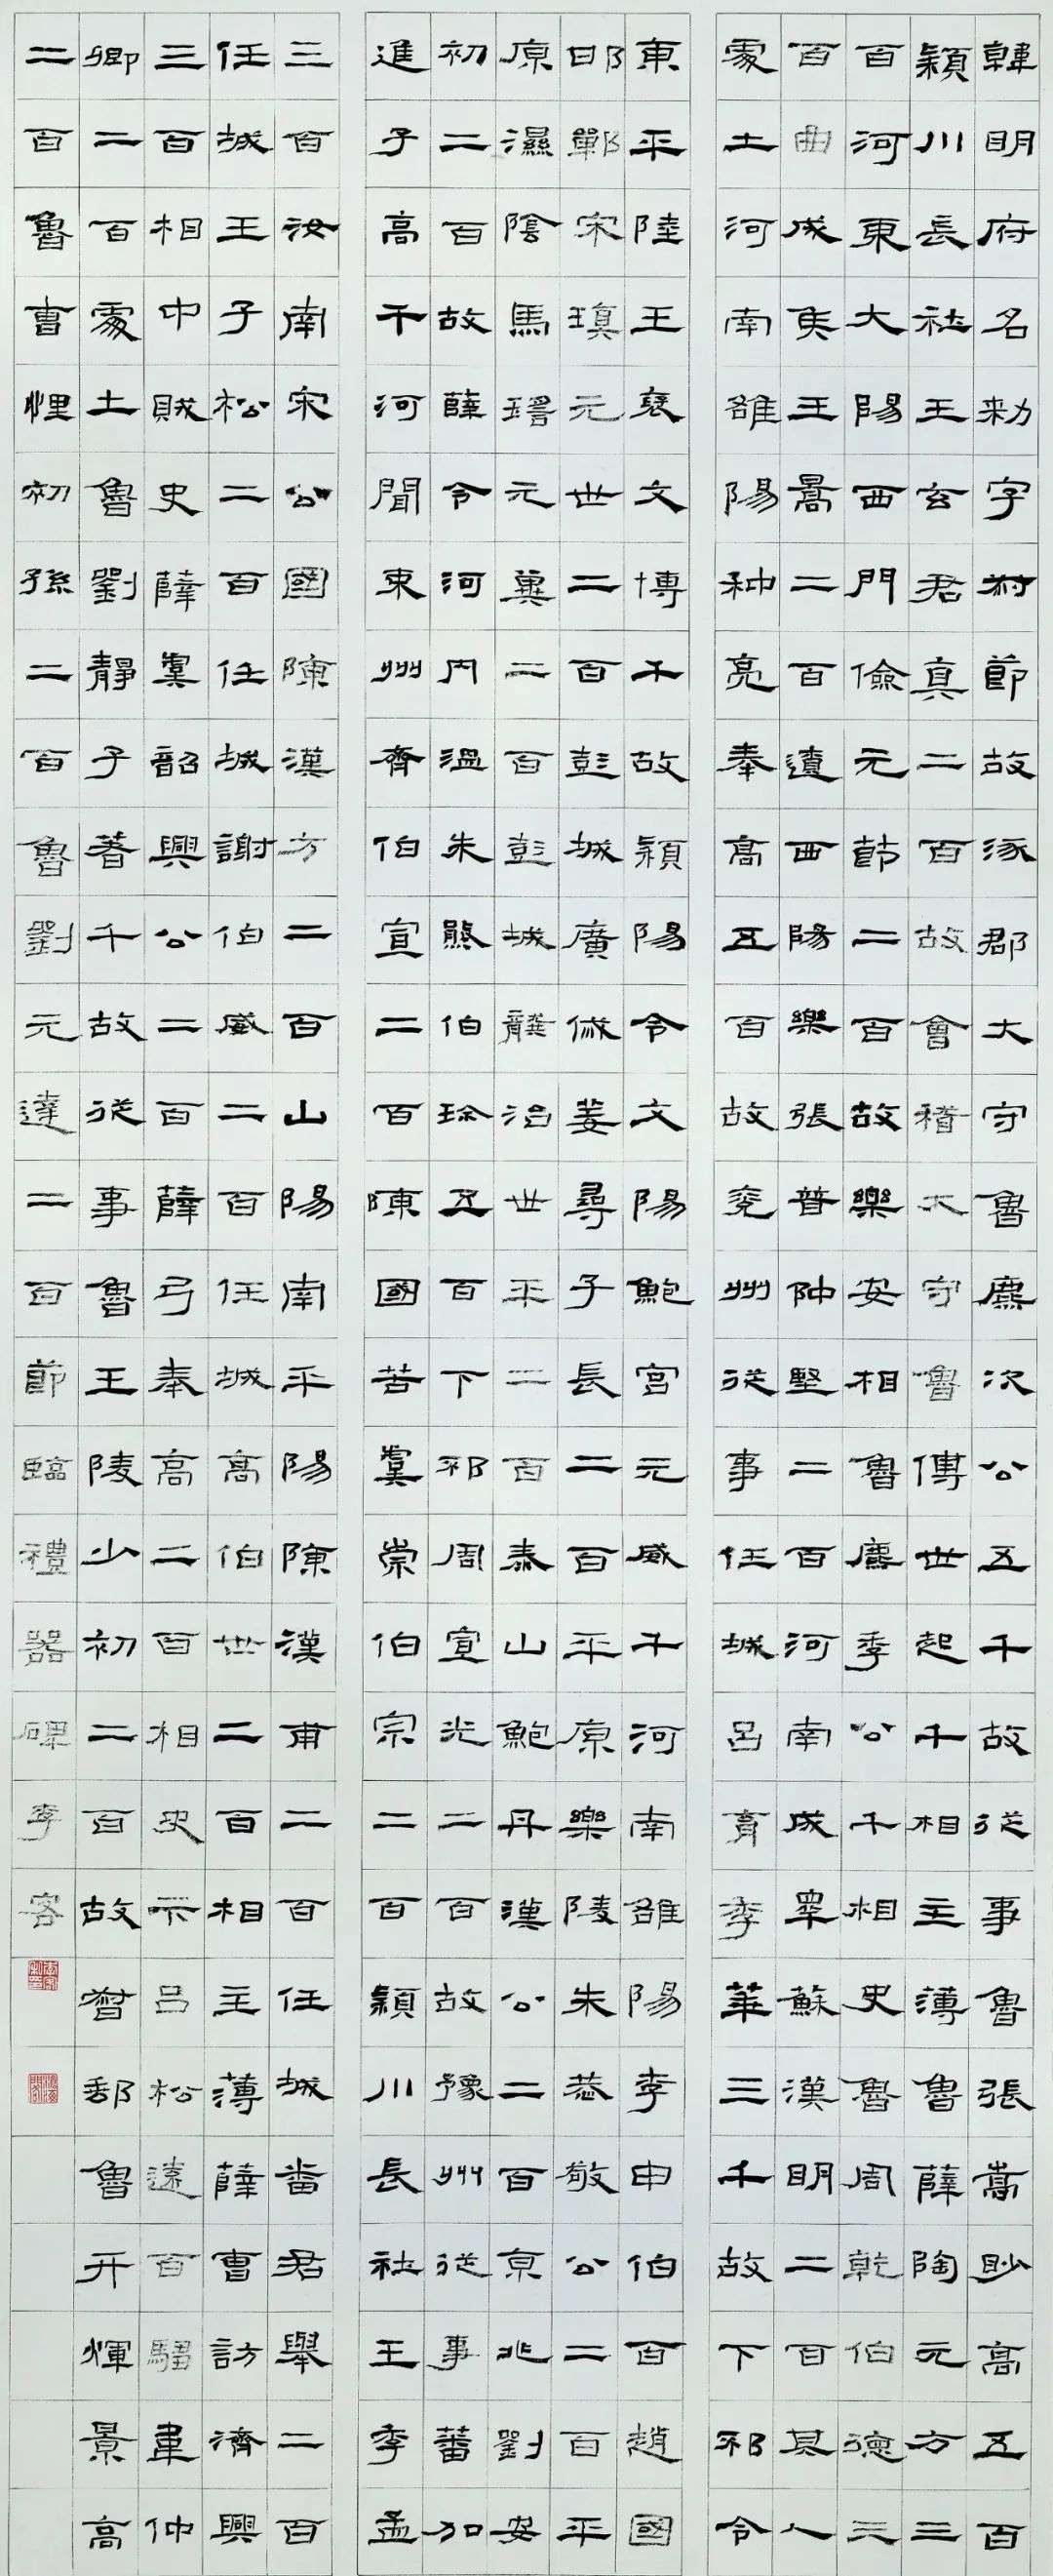 韓明府名勑字叔節故涿郡大守魯麃次公五千故從事魯張嵩眇高五百
穎川長社王玄君真二百故會稽大守魯傅世起千相主薄魯薛陶元方三
百河東大陽西門儉元節二百故樂安相魯麃季公千相史魯周乾伯德三
百曲成侯王暠二百遼西陽樂張普仲堅二百河南成睪蘇漢明二百其人
處土河南雒陽种亮奉高五百故兗州從事任城呂育季華三千故下邳令
東平陸王褒文博千故穎陽令文陽鮑宮元威千河南雒陽李申伯百趙國
邯鄲宋瑱元世二百彭城廣戚姜尋子長二百平原樂陵朱恭敬公二百平
原濕陰馬瑶元冀二百彭城龔治世平二百泰山鮑丹漢公二百京兆劉安
初二百故薛令河內溫朱熊伯珍五百下邳周宣光二百故豫州從事蕃加
進子高千河聞東州齊伯宣二百陳國苦虞崇伯宗二百穎川長社王季孟
三百汝南宋公國陳漢方二百山陽南平陽陳漢甫二百任城番君舉二百
任城王子松二百任城謝伯威二百任城高伯世二百相主薄薛曹訪濟興
三百相中賊史薛虞韶興公二百薛弓奉高二百相史卞呂松遠百騶韋仲
卿二百處土魯劉靜子著千故從事魯王陵少初二百故督郵魯开煇景高
二百魯曹悝初孫二百魯劉元達二百節臨禮器碑李容